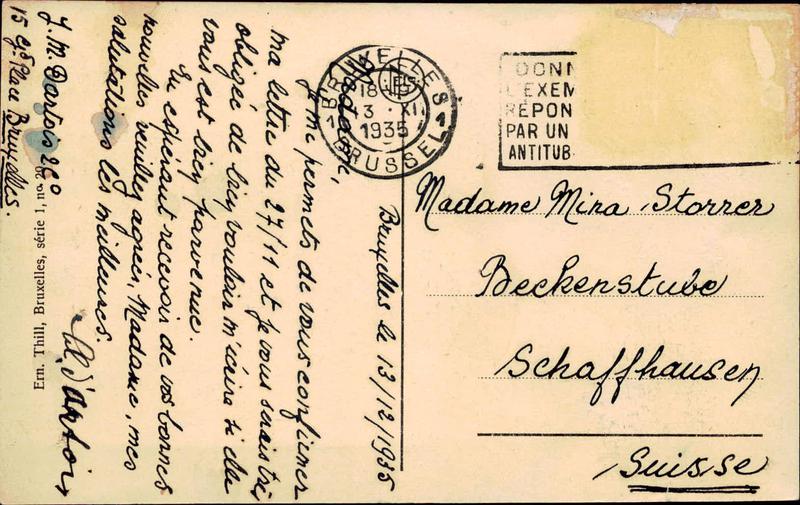 Bruxelles le 13/12/1935
Madame,
Je me permets de vous confirmer
ma lettre du 27/11 et je vous serais très
obligée de bien vouloir m'écrire si elle
vous est bien parvenue.
En espérant recevoir de vos bonnes
nouvelles veuillez agréer, Madame, mes
salutations les meilleures.
J. M. Dartois
15 Place Bruxelles.
Ern. Thill, Bruxelles, série 1, no. 20
BRUXELLES
18
3 XII
1935
1 1
BRUSSEL
DONN
L'EXEM
RÉPON
PAR UN
ANTITUB
Madame Mina Storrer
Beckenstube
Schaffhausen
Suisse